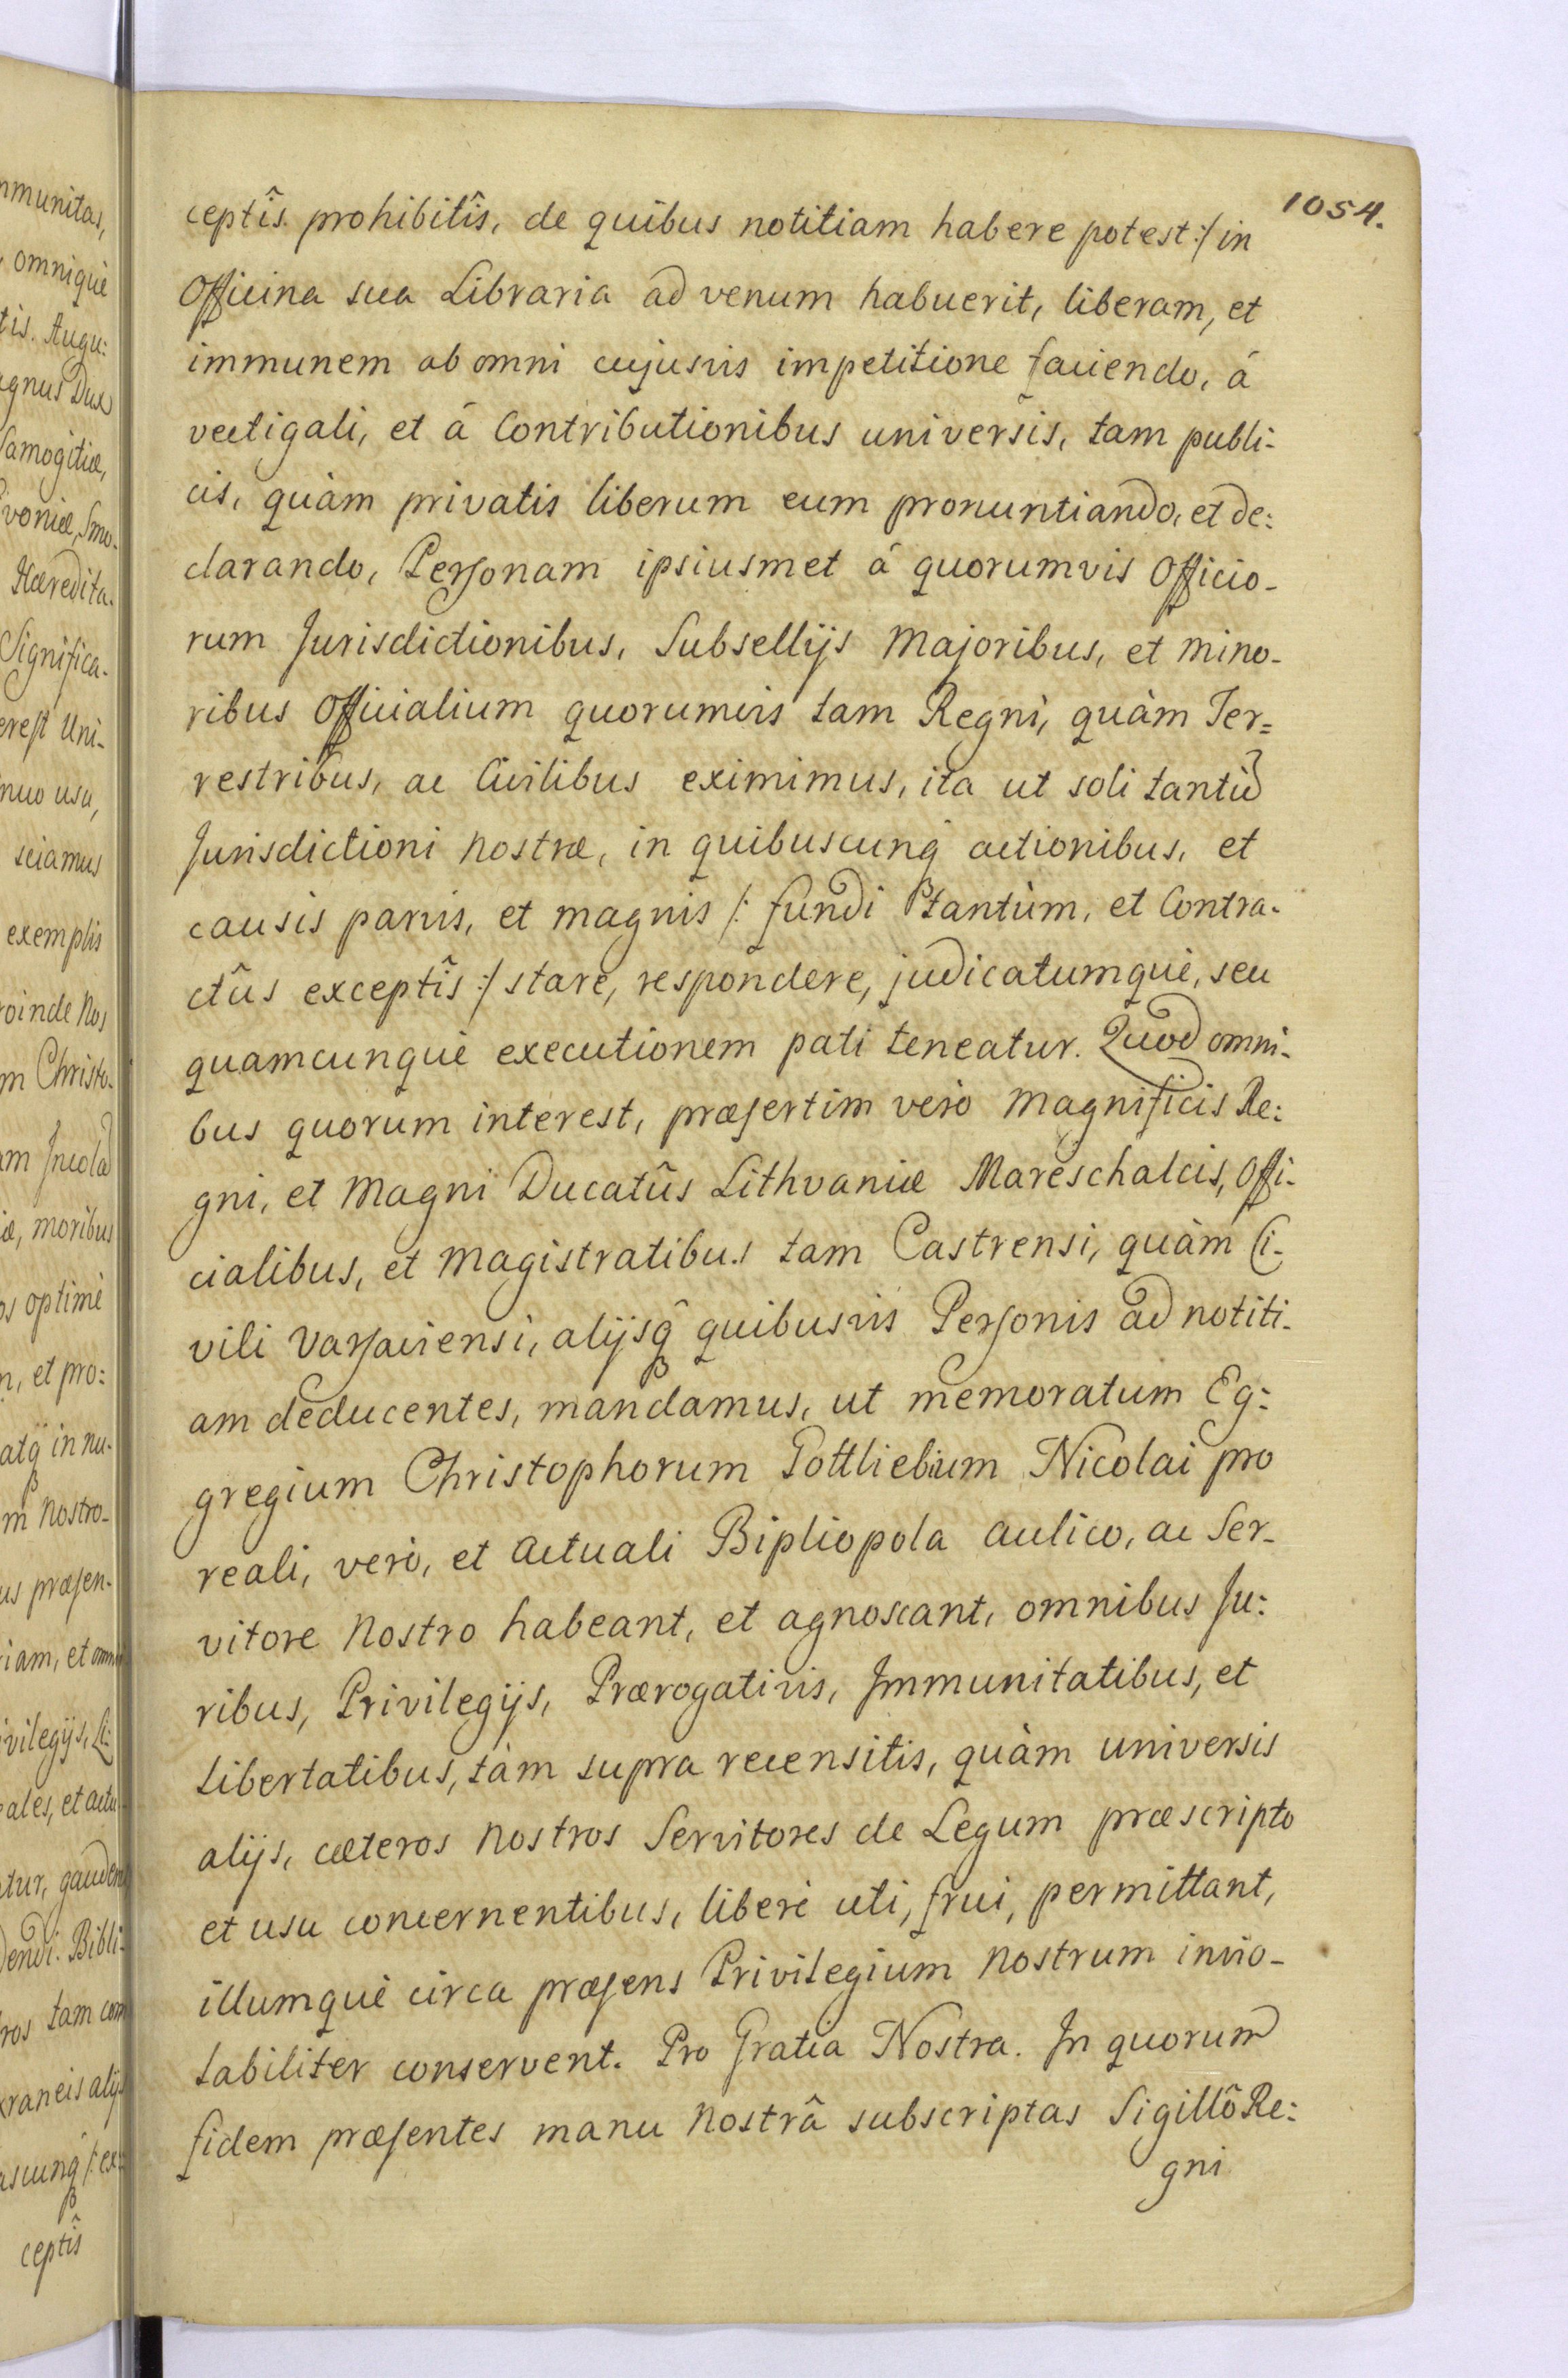 1054.
ceptîs prohibitîs, de quibus notitiam habere potest :/ in
Officina sua Libraria ad venum habuerit, liberam, et
immunem ab omni cujusvis impetitione faciendo, á
vectigali, et á Contributionibus universis, tam publi-
cis, quàm privatis liberum eum pronuntiando, et de:
clarando, Personam ipsiusmet á quorumvis Officio-
rum Jurisdictionibus, Subsellijs Majoribus, et mino-
ribus Officialium quorumvis tam Regni, quàm Ter=
restribus, ac Civilibus eximimus, ita ut soli tantum
Jurisdictioni nostræ, in quibuscunq́ actionibus, et
causis parvis, et magnis /: fundi tantùm, et Contra-
ctûs exceptîs :/ stare, respondere, judicatumquè, seu
quamcunquè executionem pati teneatur. Quod omni-
bus quorum interest, præsertim verò Magnificis Re:
gni, et Magni Ducatûs Lithvaniæ Mareschalcis, Offi-
cialibus, et Magistratibus tam Castrensi, quàm Ci-
vili Varsaviensi, alijsq̃ quibusvis Personis ad notiti-
am deducentes, mandamus, ut memoratum Eg:
gregium Christophorum Gottliebium Nicolai pro
reali, verò, et actuali Bipliopola aulico, ac Ser-
vitore Nostro habeant, et agnoscant, omnibus Ju:
ribus, Privilegijs, Prærogativis, Immunitatibus, et
Libertatibus, tàm supra recensitis, quàm universis
alijs, cæteros Nostros Servitores de Legum præscripto
et usu concernentibus, liberè uti, frui, permittant,
illumquè circa præsens Privilegium Nostrum invio-
labiliter conservent. Pro Gratia Nostra. In quorum
fidem præsentes manu Nostrâ subscriptas Sigillô Re:
gni